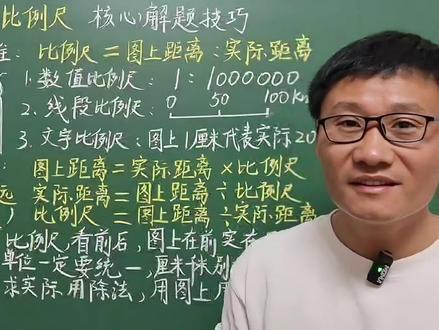 比例尺 核心解题技巧
准: 比例尺 = 图上距离 : 实际距离
1.数值比例尺: 1:1000000
2.线段比例尺: 0 50 100Km
3.文字比例尺:图上1厘米代表实际20
: 图上距离 = 实际距离 × 比例尺
远 实际距离 = 图上距离 ÷ 比例尺
) 比例尺 = 图上距离 ÷ 实际距离
比例尺,看前后,图上在前实在
单位一定要统一,厘米米别
求实际用除法,用图上